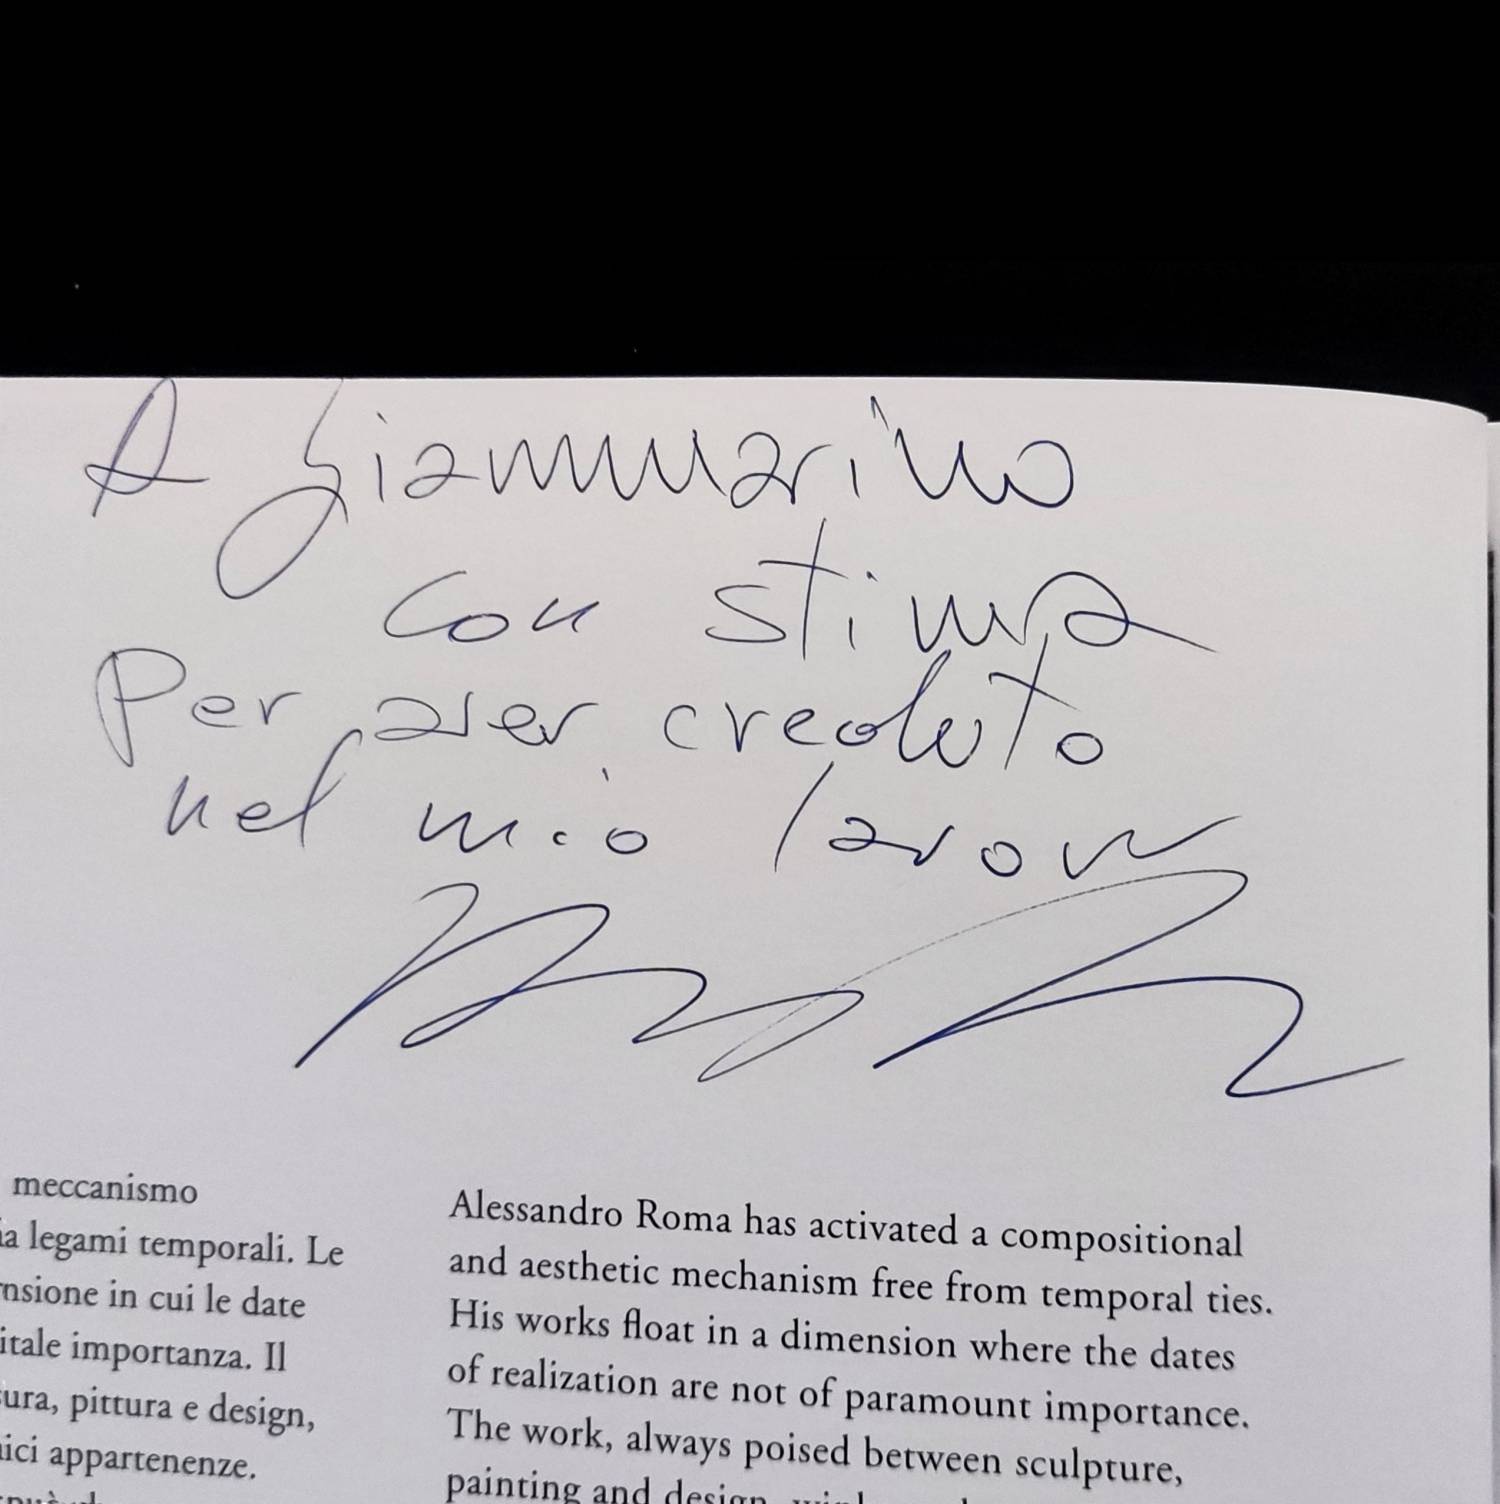 A Gianmarino
con stima
Per aver creduto
nel mio lavoro
meccanismo
ia legami temporali. Le
nsione in cui le date
itale importanza. Il
ura, pittura e design,
ici appartenenze.
Alessandro Roma has activated a compositional
and aesthetic mechanism free from temporal ties.
His works float in a dimension where the dates
of realization are not of paramount importance.
The work, always poised between sculpture,
painting and design,